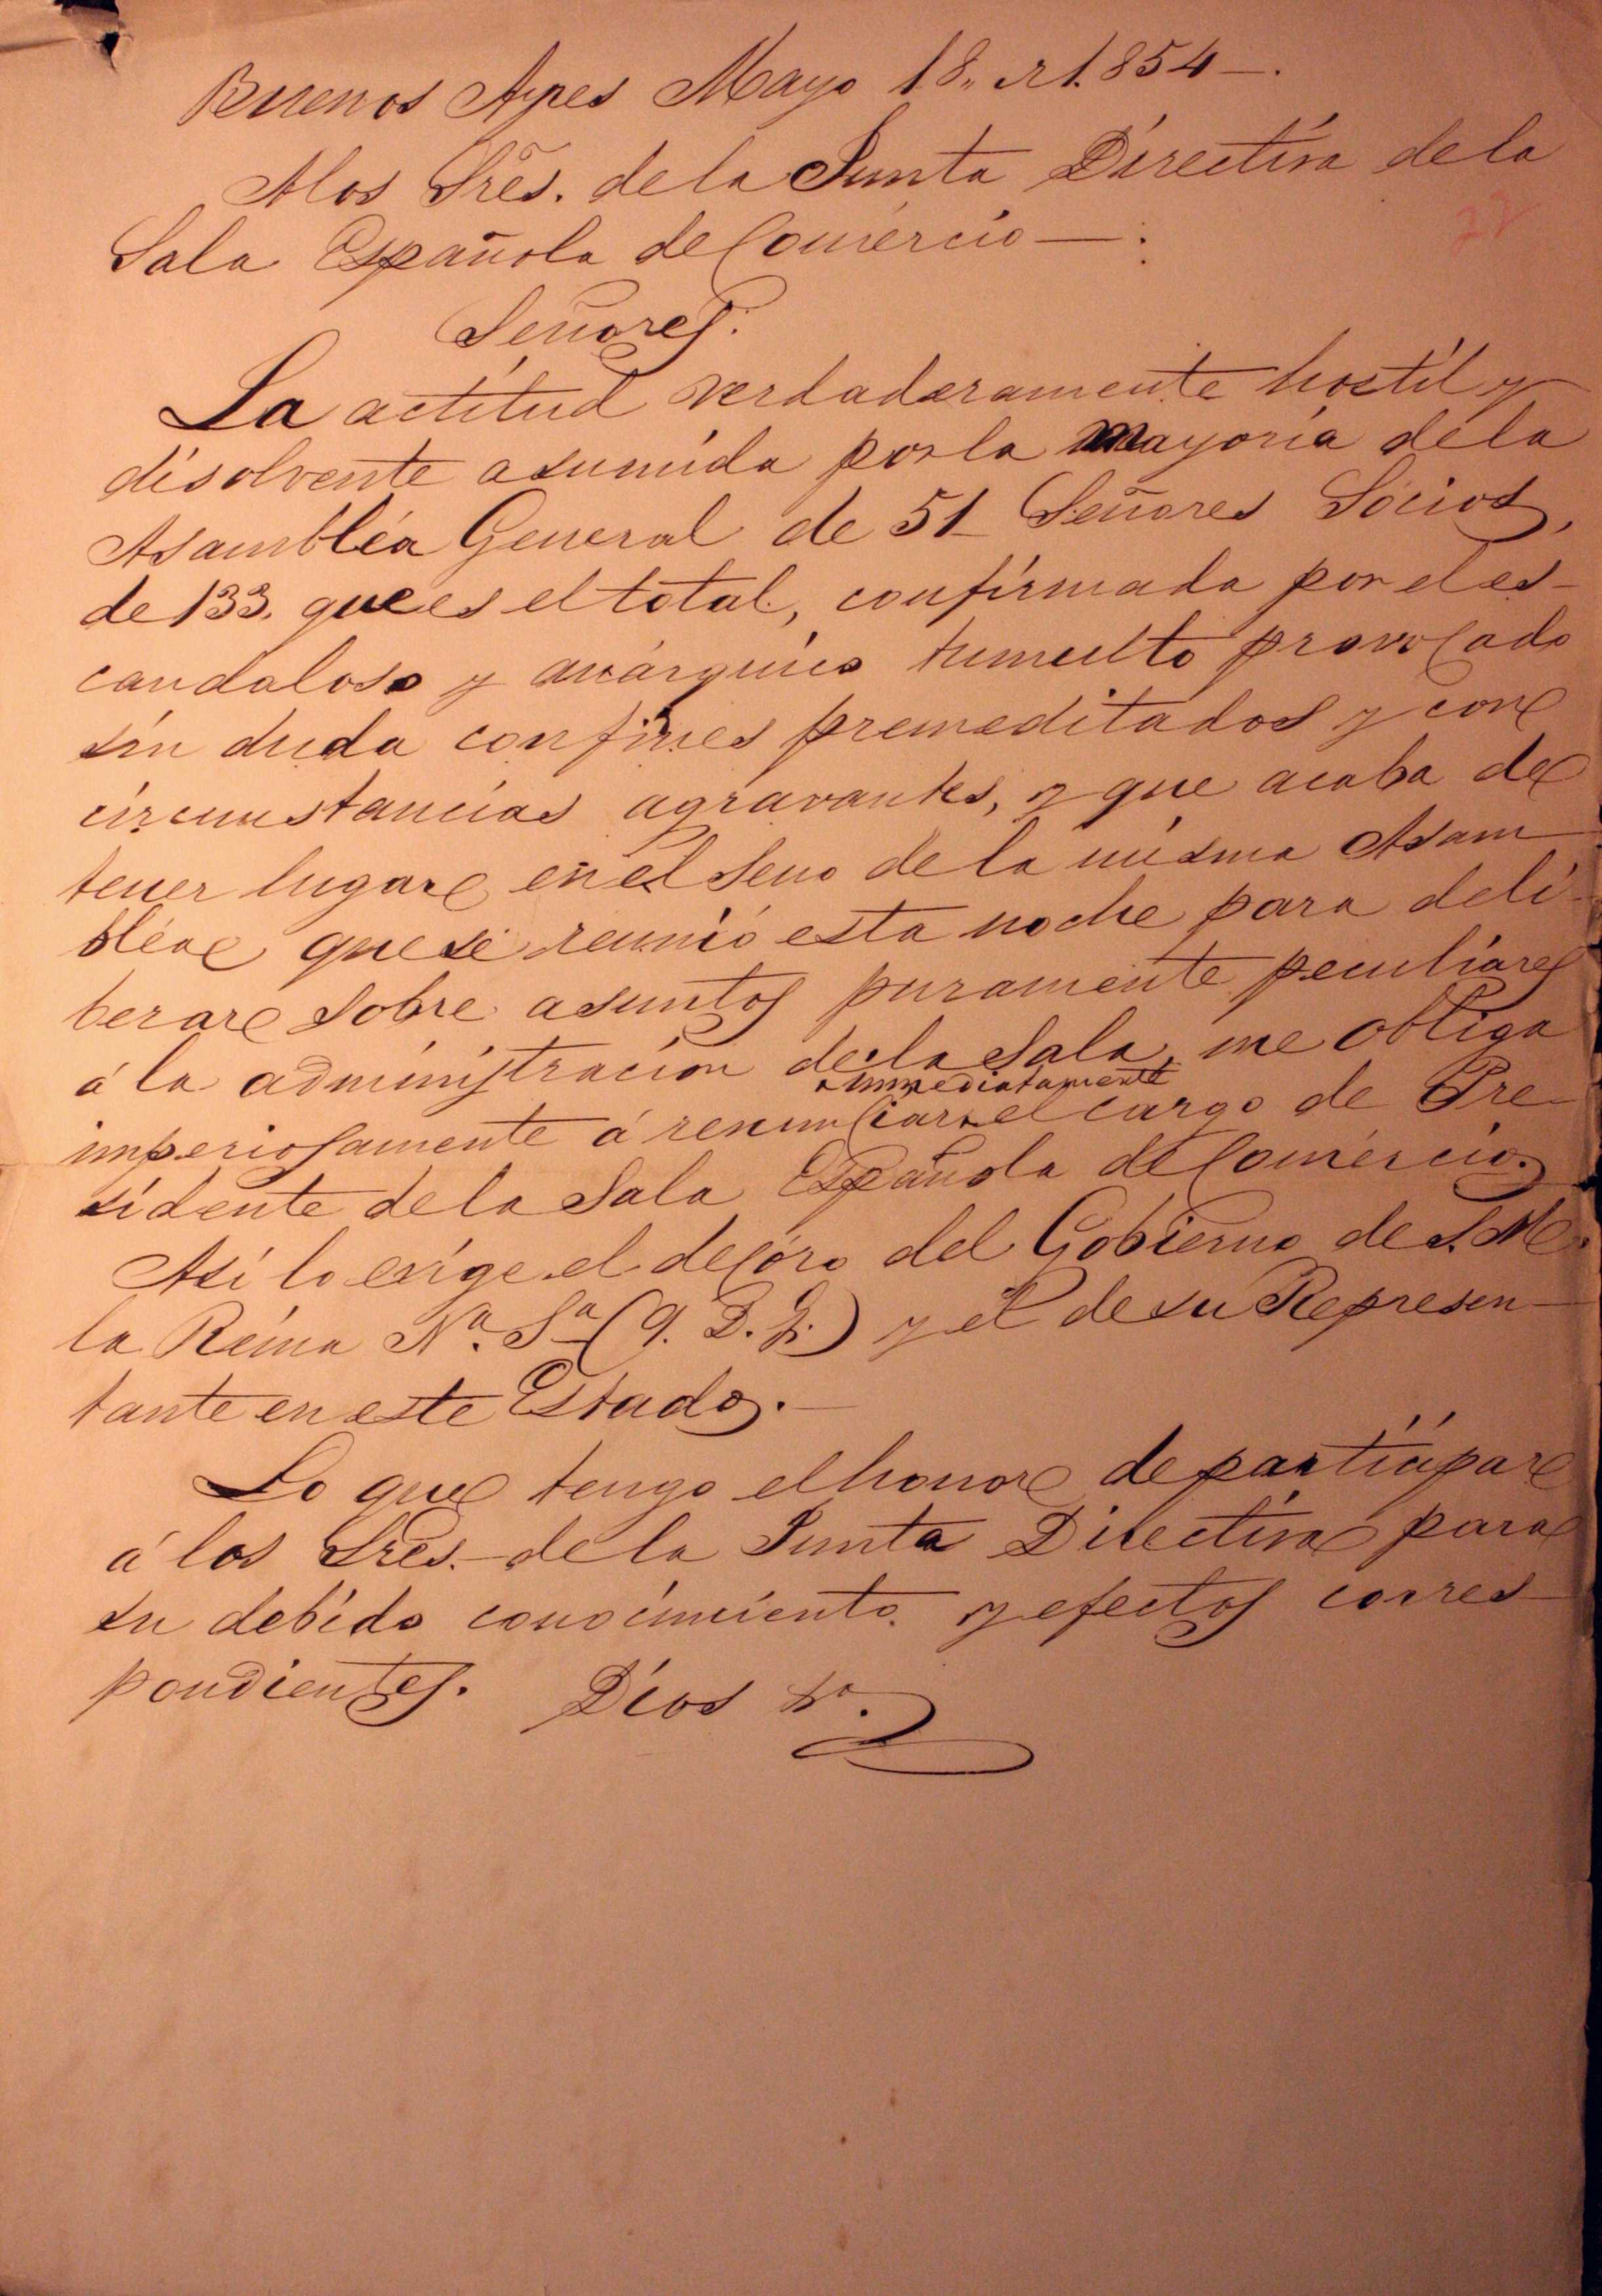 Buenos Ayres Mayo 18,, de 1.854—.
A los Sres. de la Junta Directiva de la
22
Sala Española de Comércio—:
Señores:
La actitud verdaderamente hostil y
disolvente asumida por la mayoria de la
Asambléa General de 51 Señores Sócios,
de 133. que es el total, confirmada por el es-
candaloso y anárquico tumulto provocado
sin duda con fines premeditados y con
circunstancias agravantes, y que acaba de
tener lugar en el Seno de la misma Asam-
bléa que se reunió esta noche para deli-
berar sobre asuntos puramente peculiares
á la administracion de la Sala, me obliga
immediatamente
imperiosamente á renunciar el cargo de Pre-
sidente de la Sala Española de Comércio.
Asi lo exige el decóro del Gobierno de S.M.
la Reina Na. Sa (q. D. g.) y el de su Represen-
tante en este Estado.—
Lo que tengo el honor de participar
á los Sres. de la Junta Directiva para
su debido conocimiento y efectos corres-
pondientes. Dios